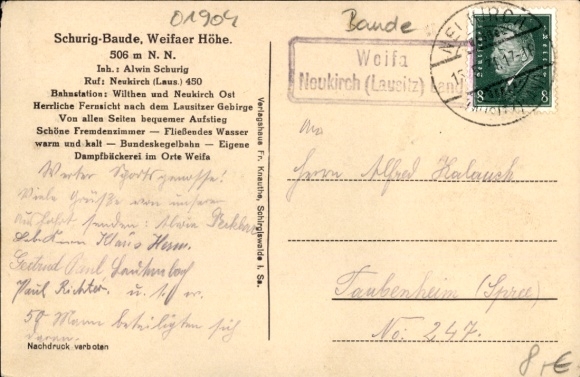 01904
Baude
Schurig-Baude, Weifaer Höhe.
506 m N. N.
Inh.: Alwin Schurig
Ruf: Neukirch (Laus.) 450
Bahnstation: Wilthen und Neukirch Ost
Herrliche Fernsicht nach dem Lausitzer Gebirge
Von allen Seiten bequemer Aufstieg
Schöne Fremdenzimmer — Fließendes Wasser
warm und kalt — Bundeskegelbahn — Eigene
Dampfbäckerei im Orte Weifa
Werter Sportsgenosse!
Viele Grüße von unserer
Ausfahrt senden: Alwin
Klaus Herm.
Gertrud Paul Lautenbach
Paul Richter. u. s. w.
50 Mann beteiligten sich
daran.
Nachdruck verboten
Verlagshaus Fr. Knauthe, Schirgiswalde i. Sa.
Weifa
Neukirch (Lausitz) Land
NEUKIRCH
Deutsches Reich
8 8
An
Herrn Alfred Kalauch
Taubenheim (Spree)
No: 247.
8,-€